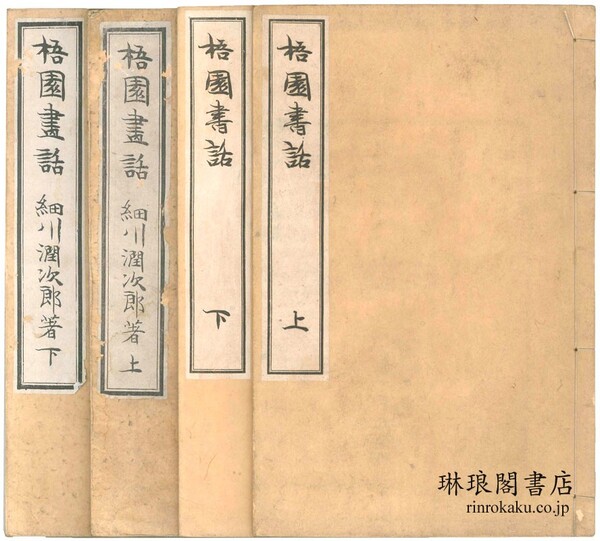 梧園書話 上
梧園書話 下
梧園畫話 細川潤次郎著 上
梧園畫話 細川潤次郎著 下
琳琅閣書店
rinrokaku.co.jp